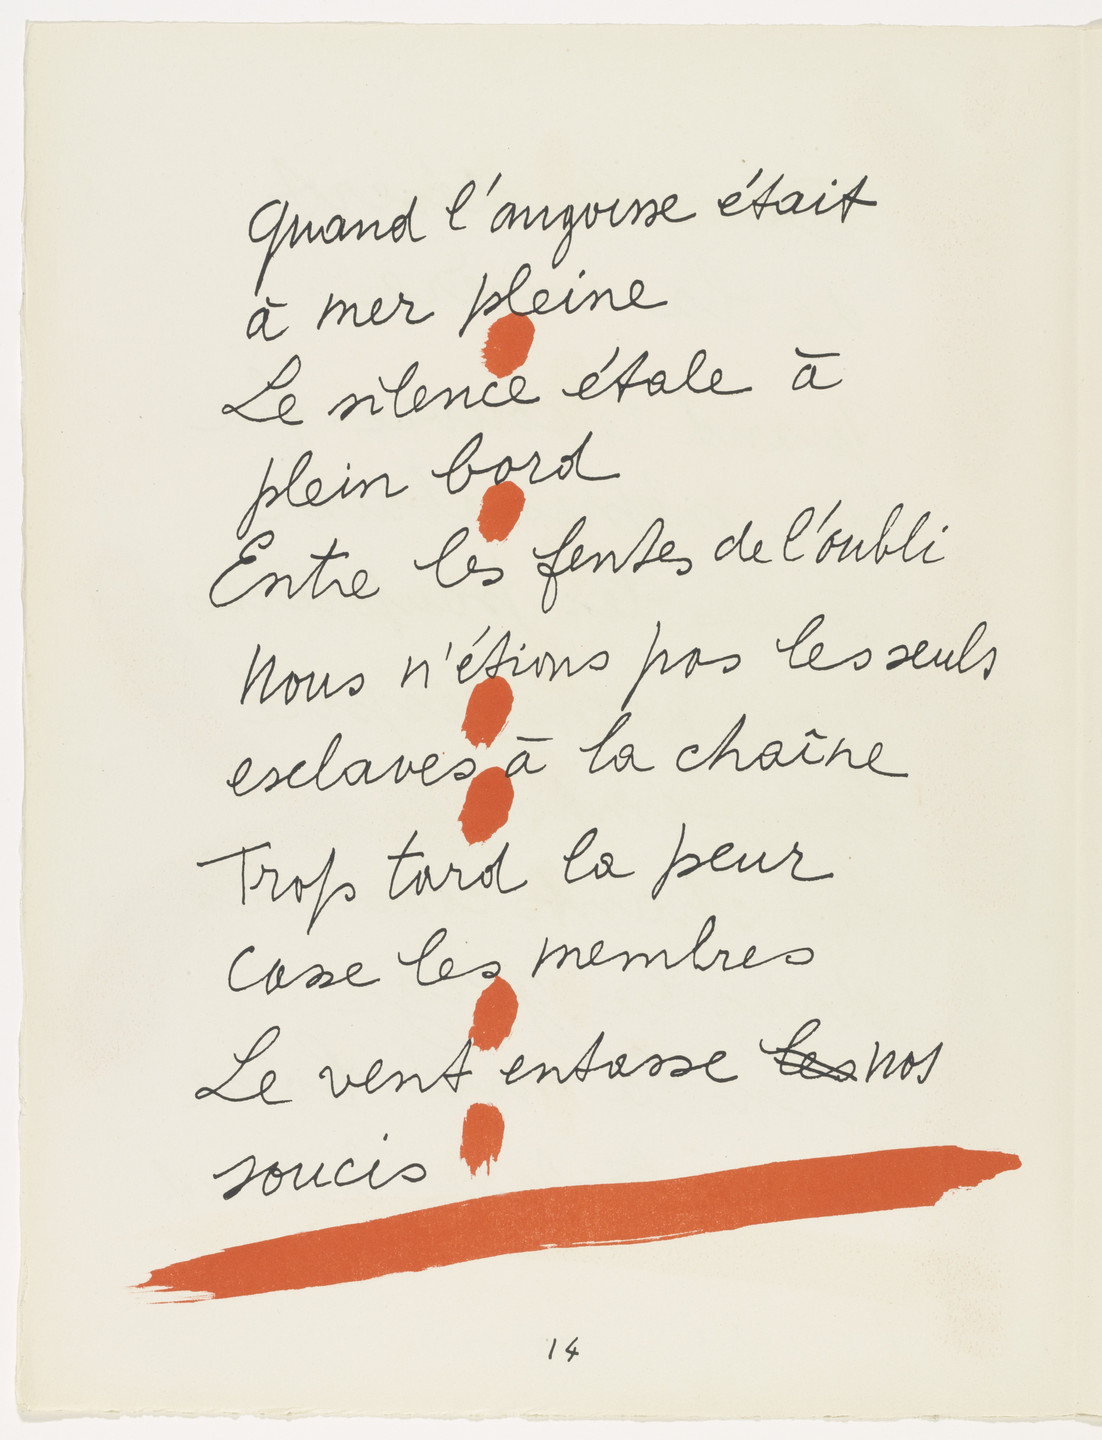 Quand l'angoisse était
à mer pleine
Le silence étale à
plein bord
Entre les fentes de l'oubli
Nous n'étions pas les seuls
esclaves à la chaîne
Trop tard la peur
Casse les membres
Le vent entasse les nos
soucis
14